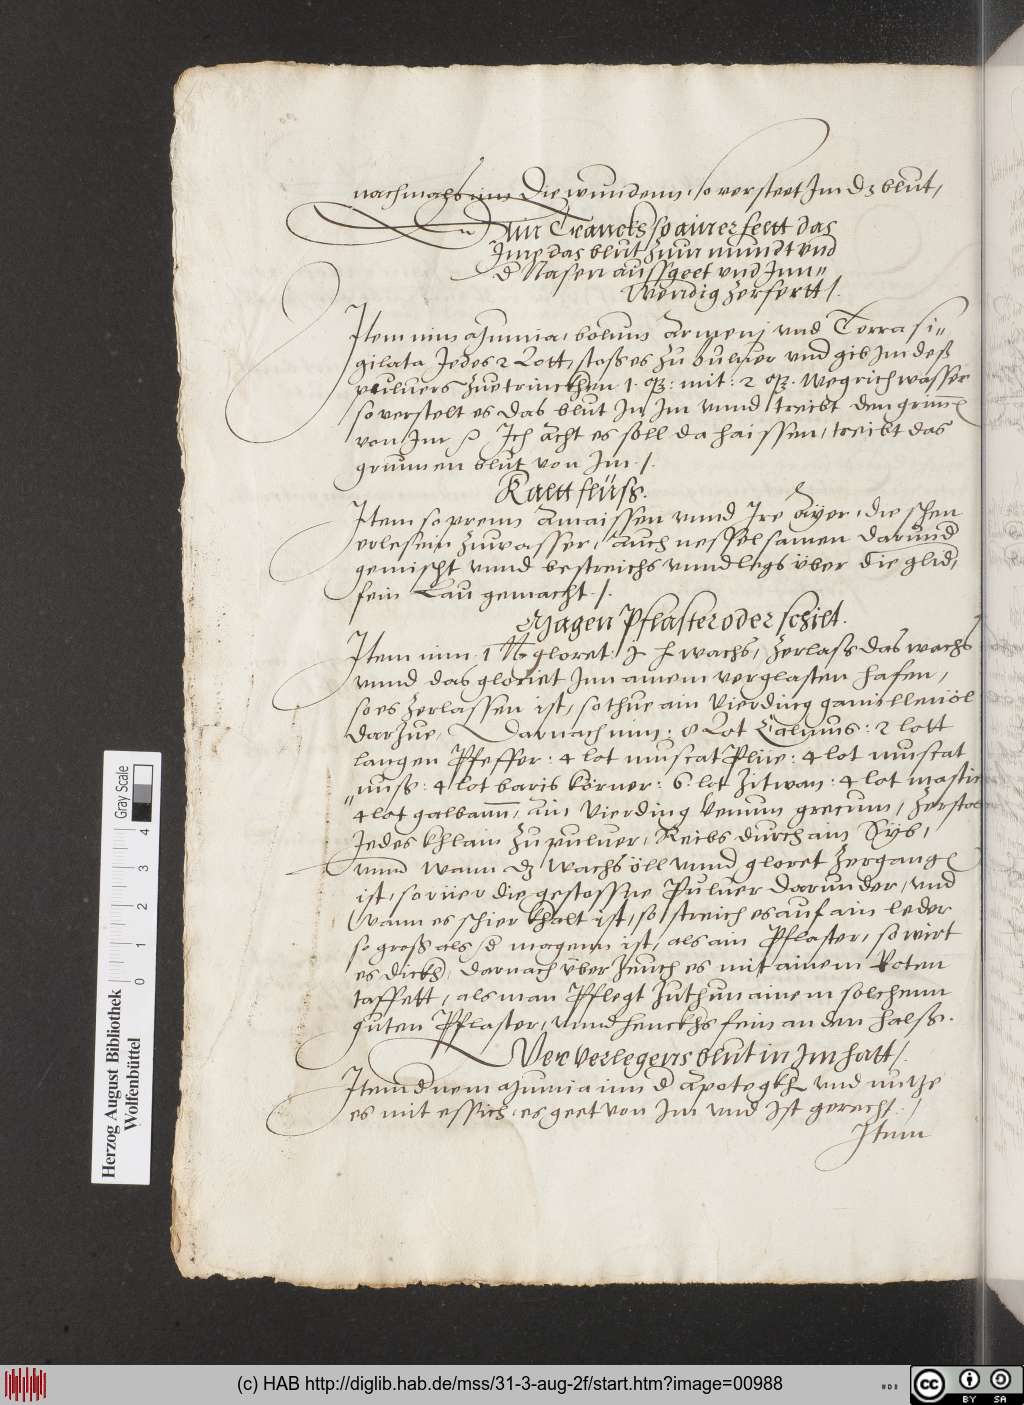 nachmahs inn die wunden, so versteet Im dz blut,
Ain Tranckh so ainer fertt das
Ime das blut zum mundt vnd
d Nasen aussgeet vnd Inn=
wendig zerfertt /.
Item nim Mumia, bolum Armenj vnd Terra si=
gilata Jedes 2 Lott, stoss es zu puluer vnd gib Im deß
puluers zue trinckhen 1. mit: 2 Wegrich wasser
so verstelt es das blut In Im vnnd treibt den grim
von Im Ich acht es soll da haissen, treibt das
grunnen blut von Im. /.
Kaltt flüss.
Item so prenn Amaissen vnnd Ire Ayer, die schen
erlesein zu wasser, Auch nessel samen darund
gemischt vnnd bestreichs vnnd legs über die glid,
fein Lau gemacht. /.
Magen Pflaster oder schilt.
Item nim 1 lb gloret: wachs, zerlass das wachs
vnnd das gloriet Inn ainem verglasten hafen,
so es zerlassen ist, so thue ain vierding gamillenöl
darzue, Darnach nim: 8 Lot Calmus: 2 lott
langen Pfeffer: 4 lot muscat Plüe: 4 lot muscat
nuss: 4 lot baris körner: 6 lot zitwan: 4 lot mastic
4 lot galbann, ain vierding venum grecum, zerstoss
Jedes khlain zu puluer, Reibs durch ain Syb,
vnnd wann dz wachs öll vnnd gloret zergang
ist, so rüer die gestossne Puluer darunder, vnd
wann es schier khalt ist, so streich es auf ain leder
so gross als d magenn ist, als ain Pflaster, so wirt
es dickh, darnach über zeuch es mit ainem Roten
taffett, als man Pflegt zuthun ainem solchenn
guten Pflaster, vnnd henckhs fein an den halss.
Wer verlegens blut in Im hatt /.
Item d nem Mumia inn d Apotegkh vnd nutze
es mit essich, es geet von Im vnd Ist gerecht. /
Item
Herzog August Bibliothek
Wolfenbüttel
0 1 2 3 4
Gray Scale
(c) HAB http://diglib.hab.de/mss/31-3-aug-2f/start.htm?image=00988
cc BY SA